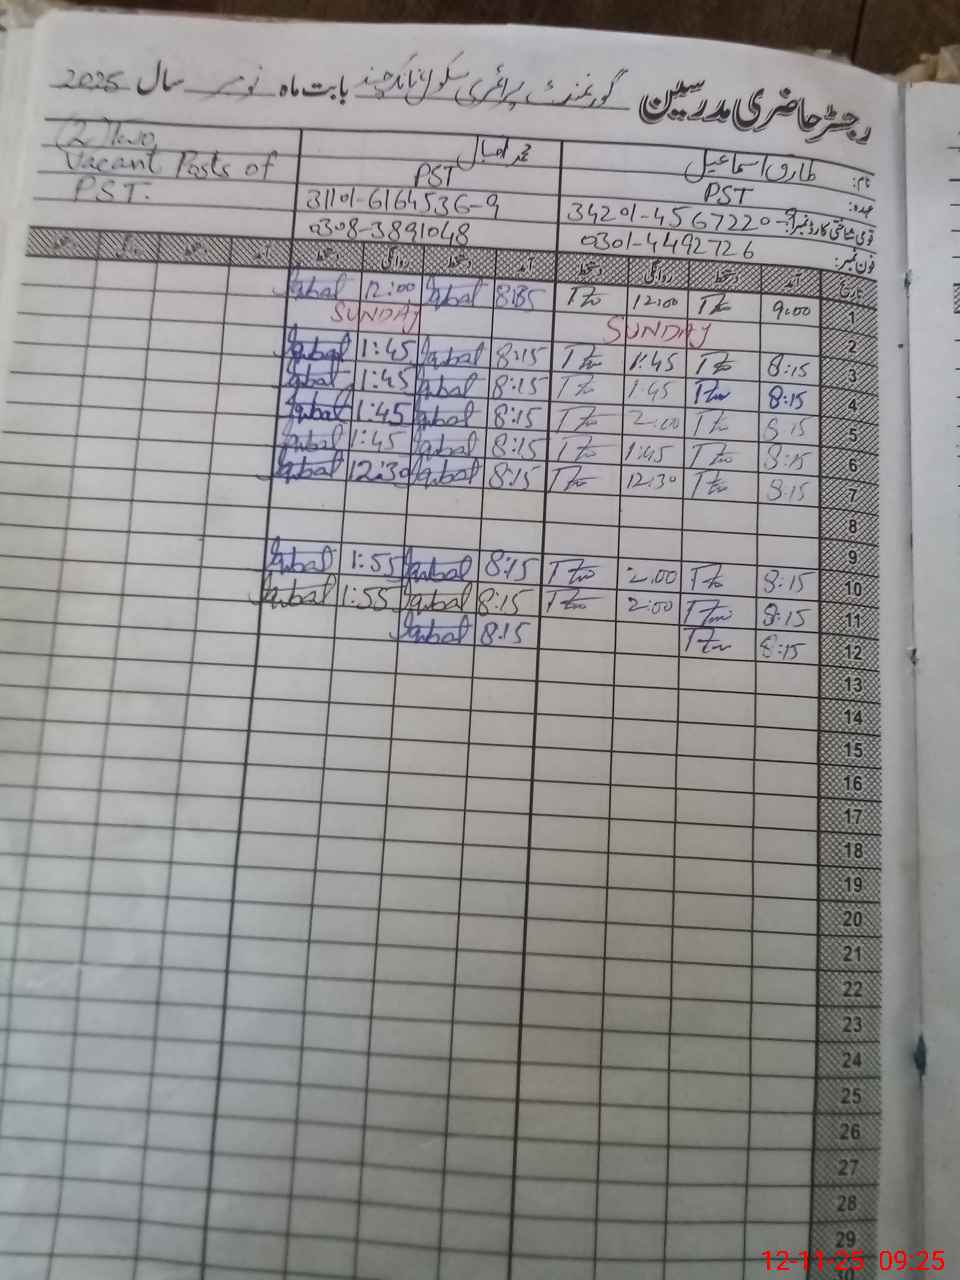 رجسٹر حاضری مدرسین گورنمنٹ پرائمری سکول نانکچند بابت ماہ نومبر سال 2025
نام: طارق اسماعیل محمد اقبال (2) Two
عہدہ: PST PST Vacant Posts of
قومی شناختی کارڈ نمبر: 34201-4567220-9 31101-6164536-9 PST.
فون نمبر: 0301-4492726 0308-3891048
تاریخ آمد دستخط روانگی دستخط آمد دستخط روانگی دستخط آمد دستخط روانگی دستخط
1 9:00 12:00 8:35 Iqbal 12:00 Iqbal
2 SUNDAY SUNDAY
3 8:15 1:45 8:15 Iqbal 1:45 Iqbal
4 8:15 1:45 8:15 Iqbal 1:45 Iqbal
5 8:15 2:00 8:15 Iqbal 1:45 Iqbal
6 8:15 1:45 8:15 Iqbal 1:45 Iqbal
7 8:15 12:30 8:15 Iqbal 12:30 Iqbal
8
9
10 8:15 2:00 8:15 Iqbal 1:55 Iqbal
11 8:15 2:00 8:15 Iqbal 1:55 Iqbal
12 8:15 8:15 Iqbal
13
14
15
16
17
18
19
20
21
22
23
24
25
26
27
28
29
12-11-25 09:25